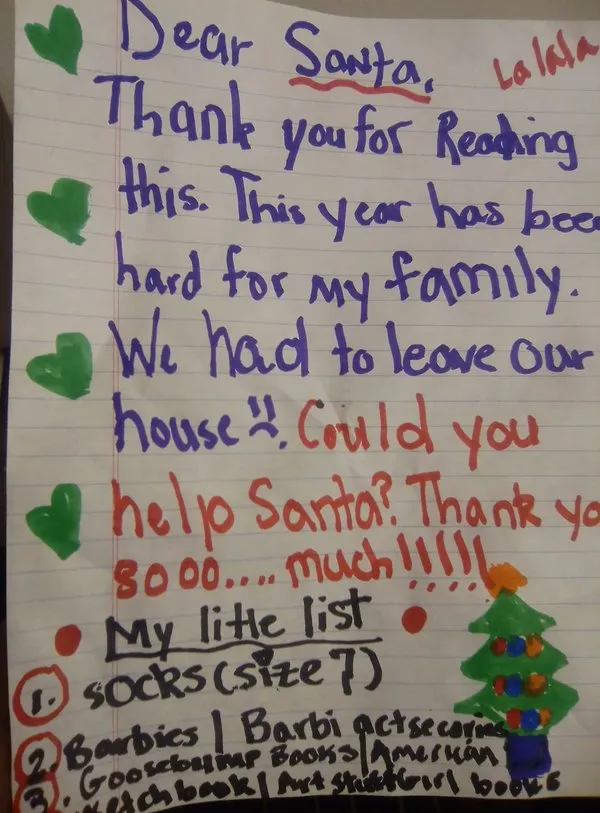 Dear Santa,
La la la
Thank you for Reading
this. This year has bee
hard for My family.
We had to leave our
house. Could you
help Santa? Thank yo
sooo.... much!!!!!
My little list
1. socks (size 7)
2. Barbies | Barbi actsecories
Goosebump Books | American
3. etch book | Art stuff Girl books